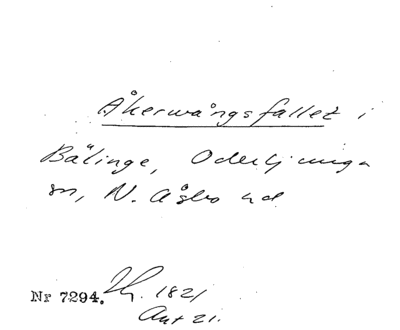 Åkerwångsfallet i
Bälinge, Oderljunga
sn, N. Åsbo hd
Nr 7294. 1821
Ant 21.